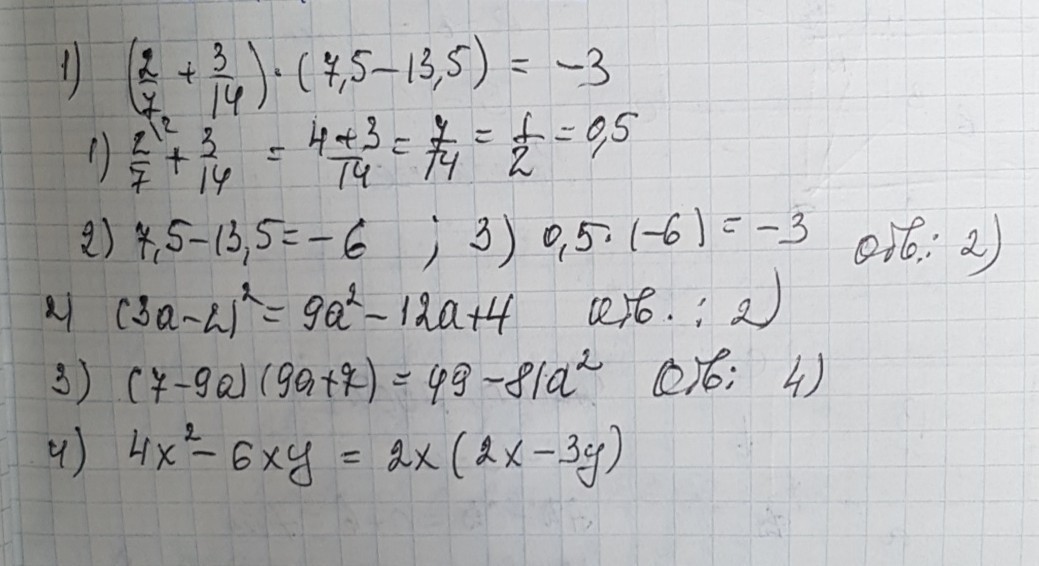 1) (2/7 + 3/14) · (7,5 – 13,5) = –3
1) 2\2/7 + 3/14 = 4+3/14 = 7/14 = 1/2 = 0,5
2) 7,5 – 13,5 = – 6 ; 3) 0,5 · (–6) = –3 Отв.: 2)
2) (3a – 2)² = 9a² – 12a + 4 Отв. : 2)
3) (7 – 9a) (9a + 7) = 49 – 81a² Отв: 4)
4) 4x² – 6xy = 2x (2x – 3y)